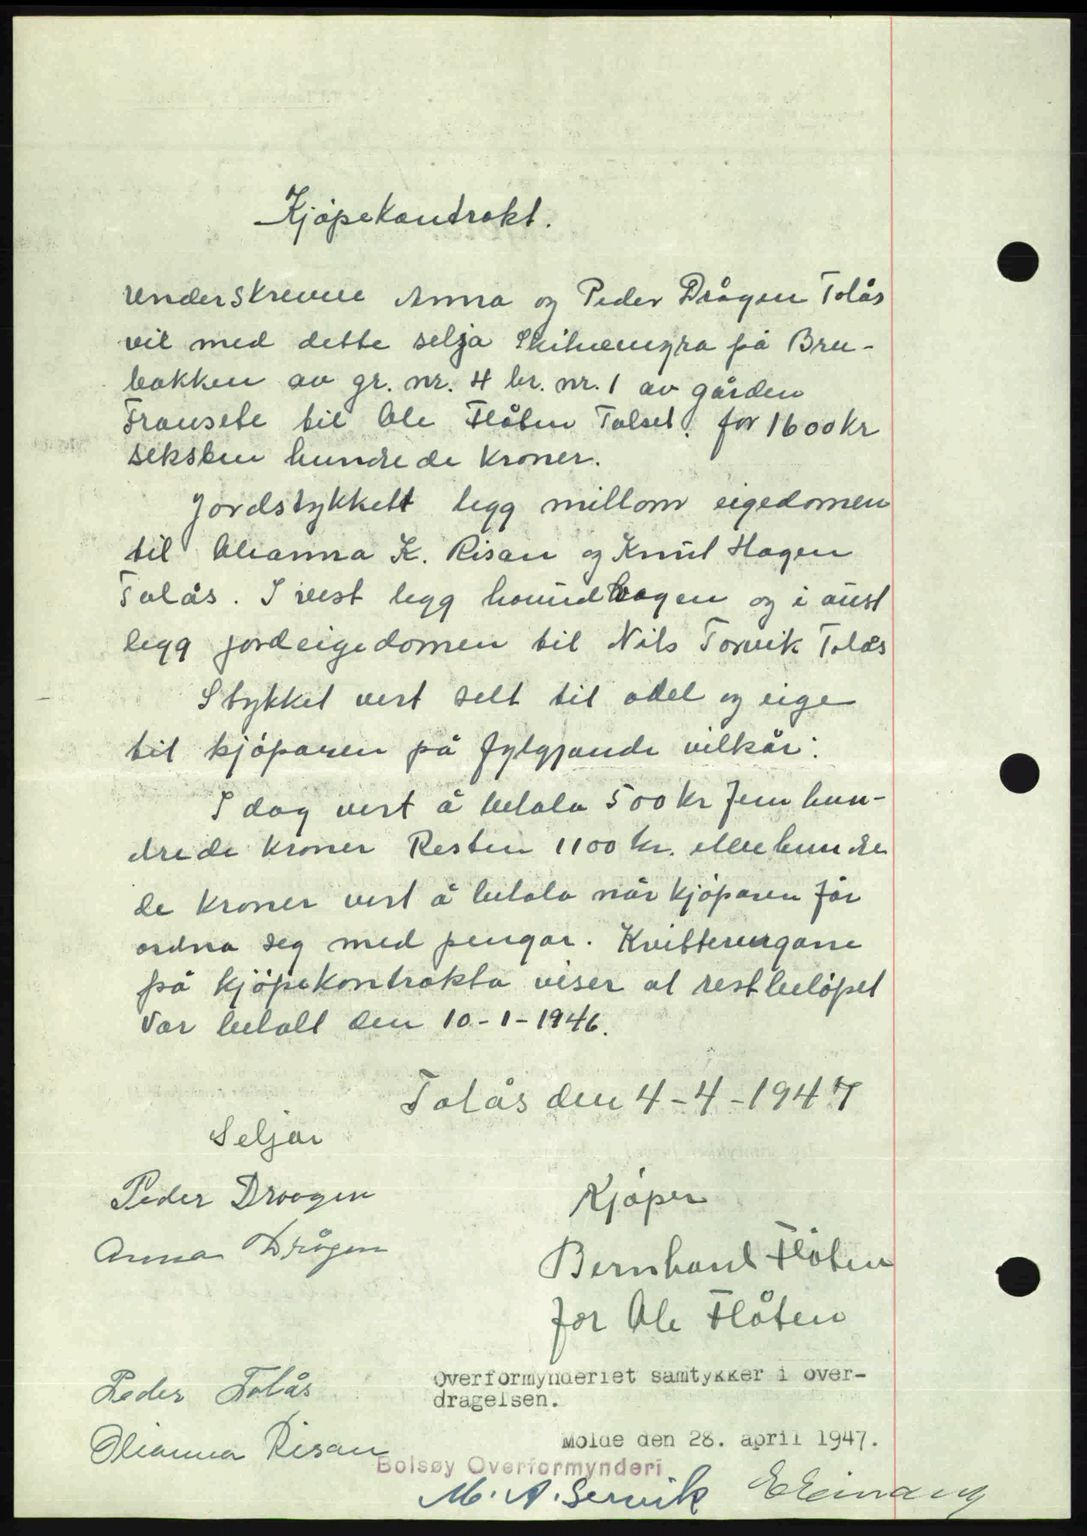 Kjøpekontrakt.
Underskrevne Anna og Peder Drågen Tolås
vil med dette selja på Bru-
bakken av gr. nr. 4 br. nr. 1 av gården
Fransete til Ole Flåten Tolset. for 1600 kr
seksten hundrede kroner.
Jordstykkett legg millom eigedomen
til Olianna K. Risan og Knut Hagen
Tolås. I vest legg hagen og i aust
legg jordeigedomen til Nils Torvik Tolås
Stykket vert selt til odel og eige
til kjøparen på fylgjande vilkår:
I dag vert å betala 500 kr fem hun-
drede kroner Resten 1100 kr. ellevehundre
de kroner vert å betala når kjøparen får
ordna seg med pengar. Kvitteringane
på kjøpekontrakta viser at restbeløpet
var betalt den 10-1-1946.
Tolås den 4-4-1947
Seljar
Peder Droogen
Kjøper
Anna Drågen
Bernhard Flåten
for Ole Flåten
Peder Tolås
Overformynderiet samtykker i over-
dragelsen.
Olianna Risan
Molde den 28. april 1947.
Bolsøy Overformynderi
M. A. Servik